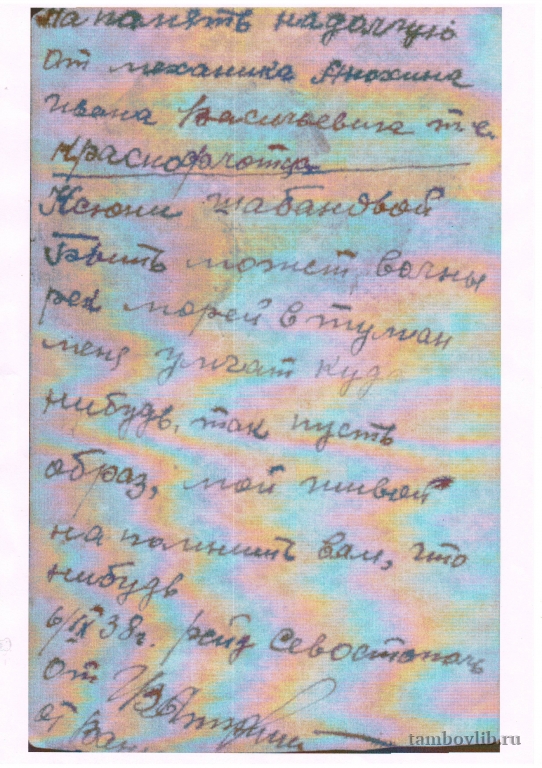 на память надолгую
От механика Анохина
Ивана Васильевича т.е.
Краснофлотца
Ксюни Шабановой
Быть может волны
рек морей в туман
меня умчат куда
нибудь, так пусть
образ, мой живой
на помнит вам, что
нибудь
6/IX 38г. рейд Севостополь
от
от Вани
tambovlib.ru